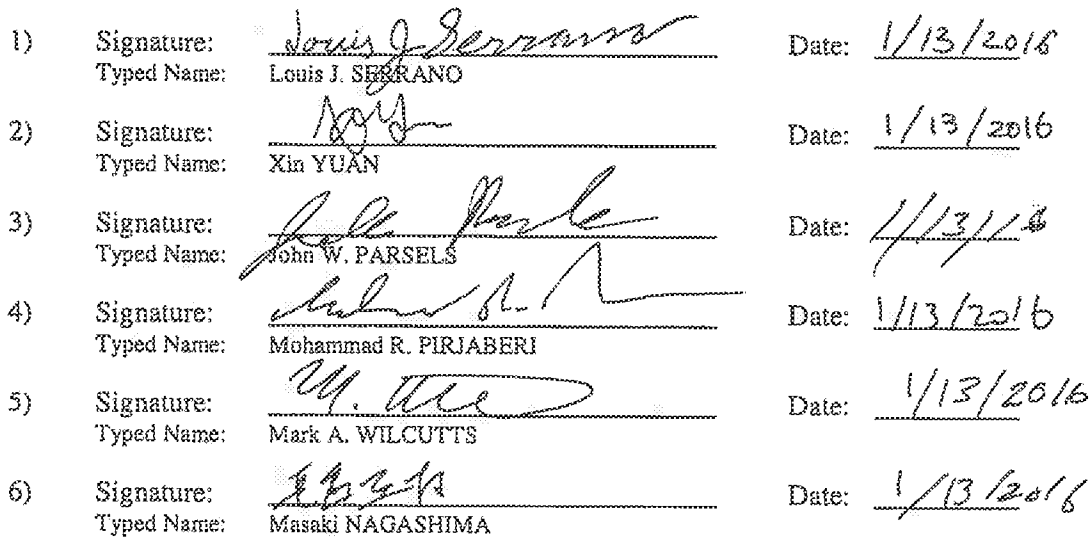 1) Signature: Louis J. Serrano Date: 1/13/2016
Typed Name: Louis J. SERRANO
2) Signature: Date: 1/13/2016
Typed Name: Xin YUAN
3) Signature: Date: 1/13/16
Typed Name: John W. PARSELS
4) Signature: Date: 1/13/2016
Typed Name: Mohammad R. PIRJABERI
5) Signature: M. Date: 1/13/2016
Typed Name: Mark A. WILCUTTS
6) Signature: Date: 1/13/2016
Typed Name: Masaki NAGASHIMA